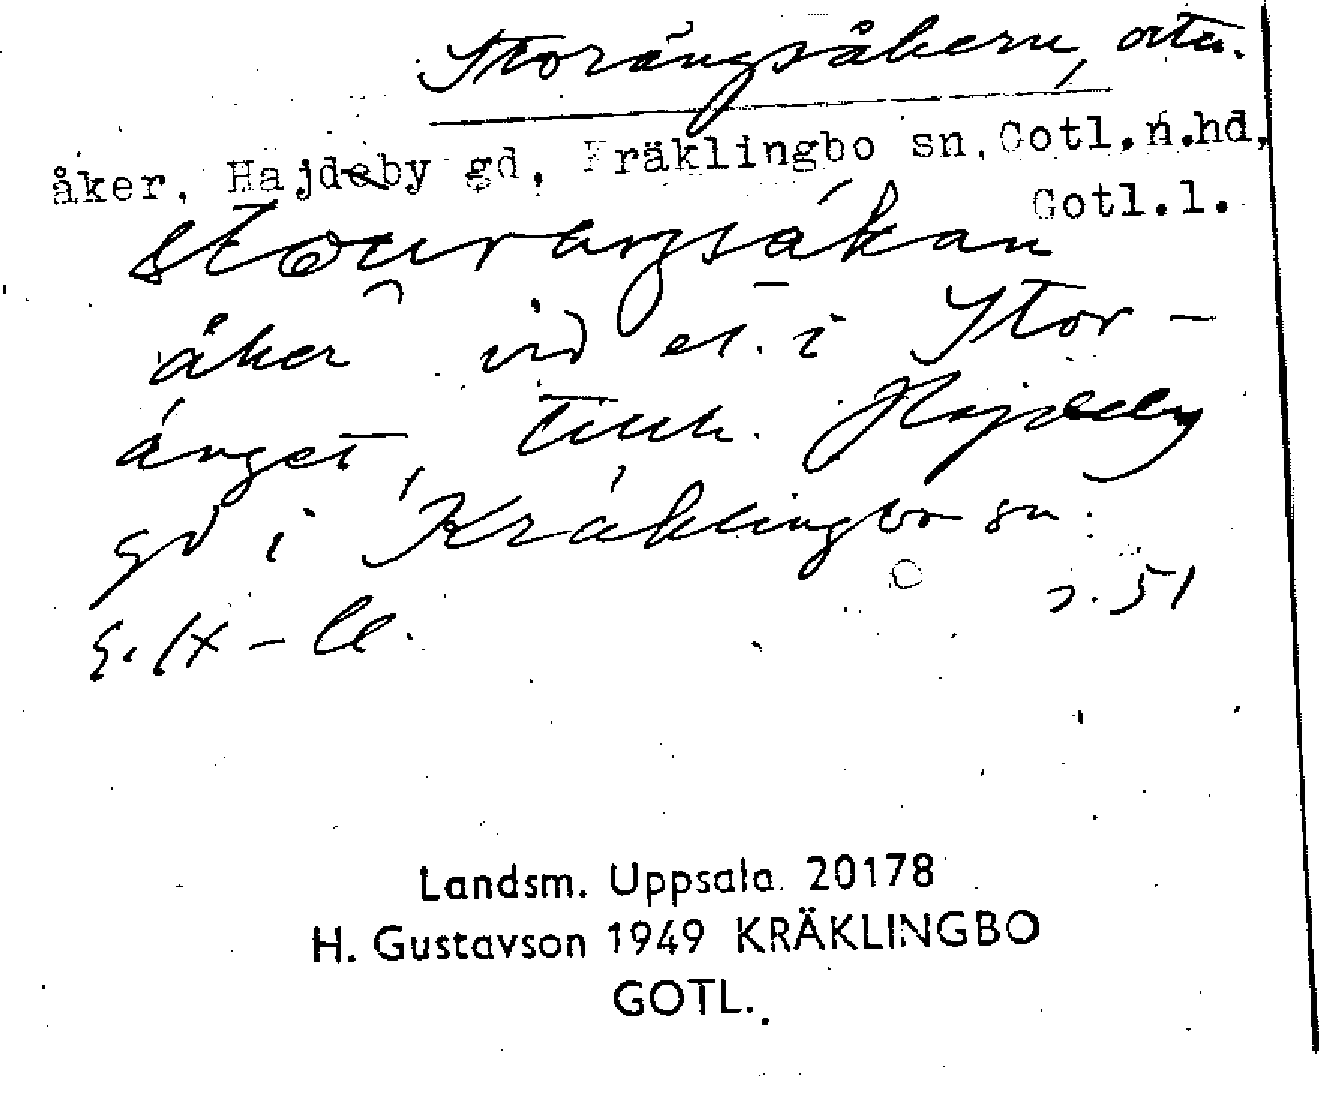 Storängsåkern,
åker, Hajdeby gd, Kräklingbo sn, Gotl.n.hd,
Gotl.l.
åker vid el. i Stor-
änget, Hajdeby
gd i Kräklingbo sn.
s. 51
Landsm. Uppsala 20178
H. Gustavson 1949 KRÄKLINGBO
GOTL.